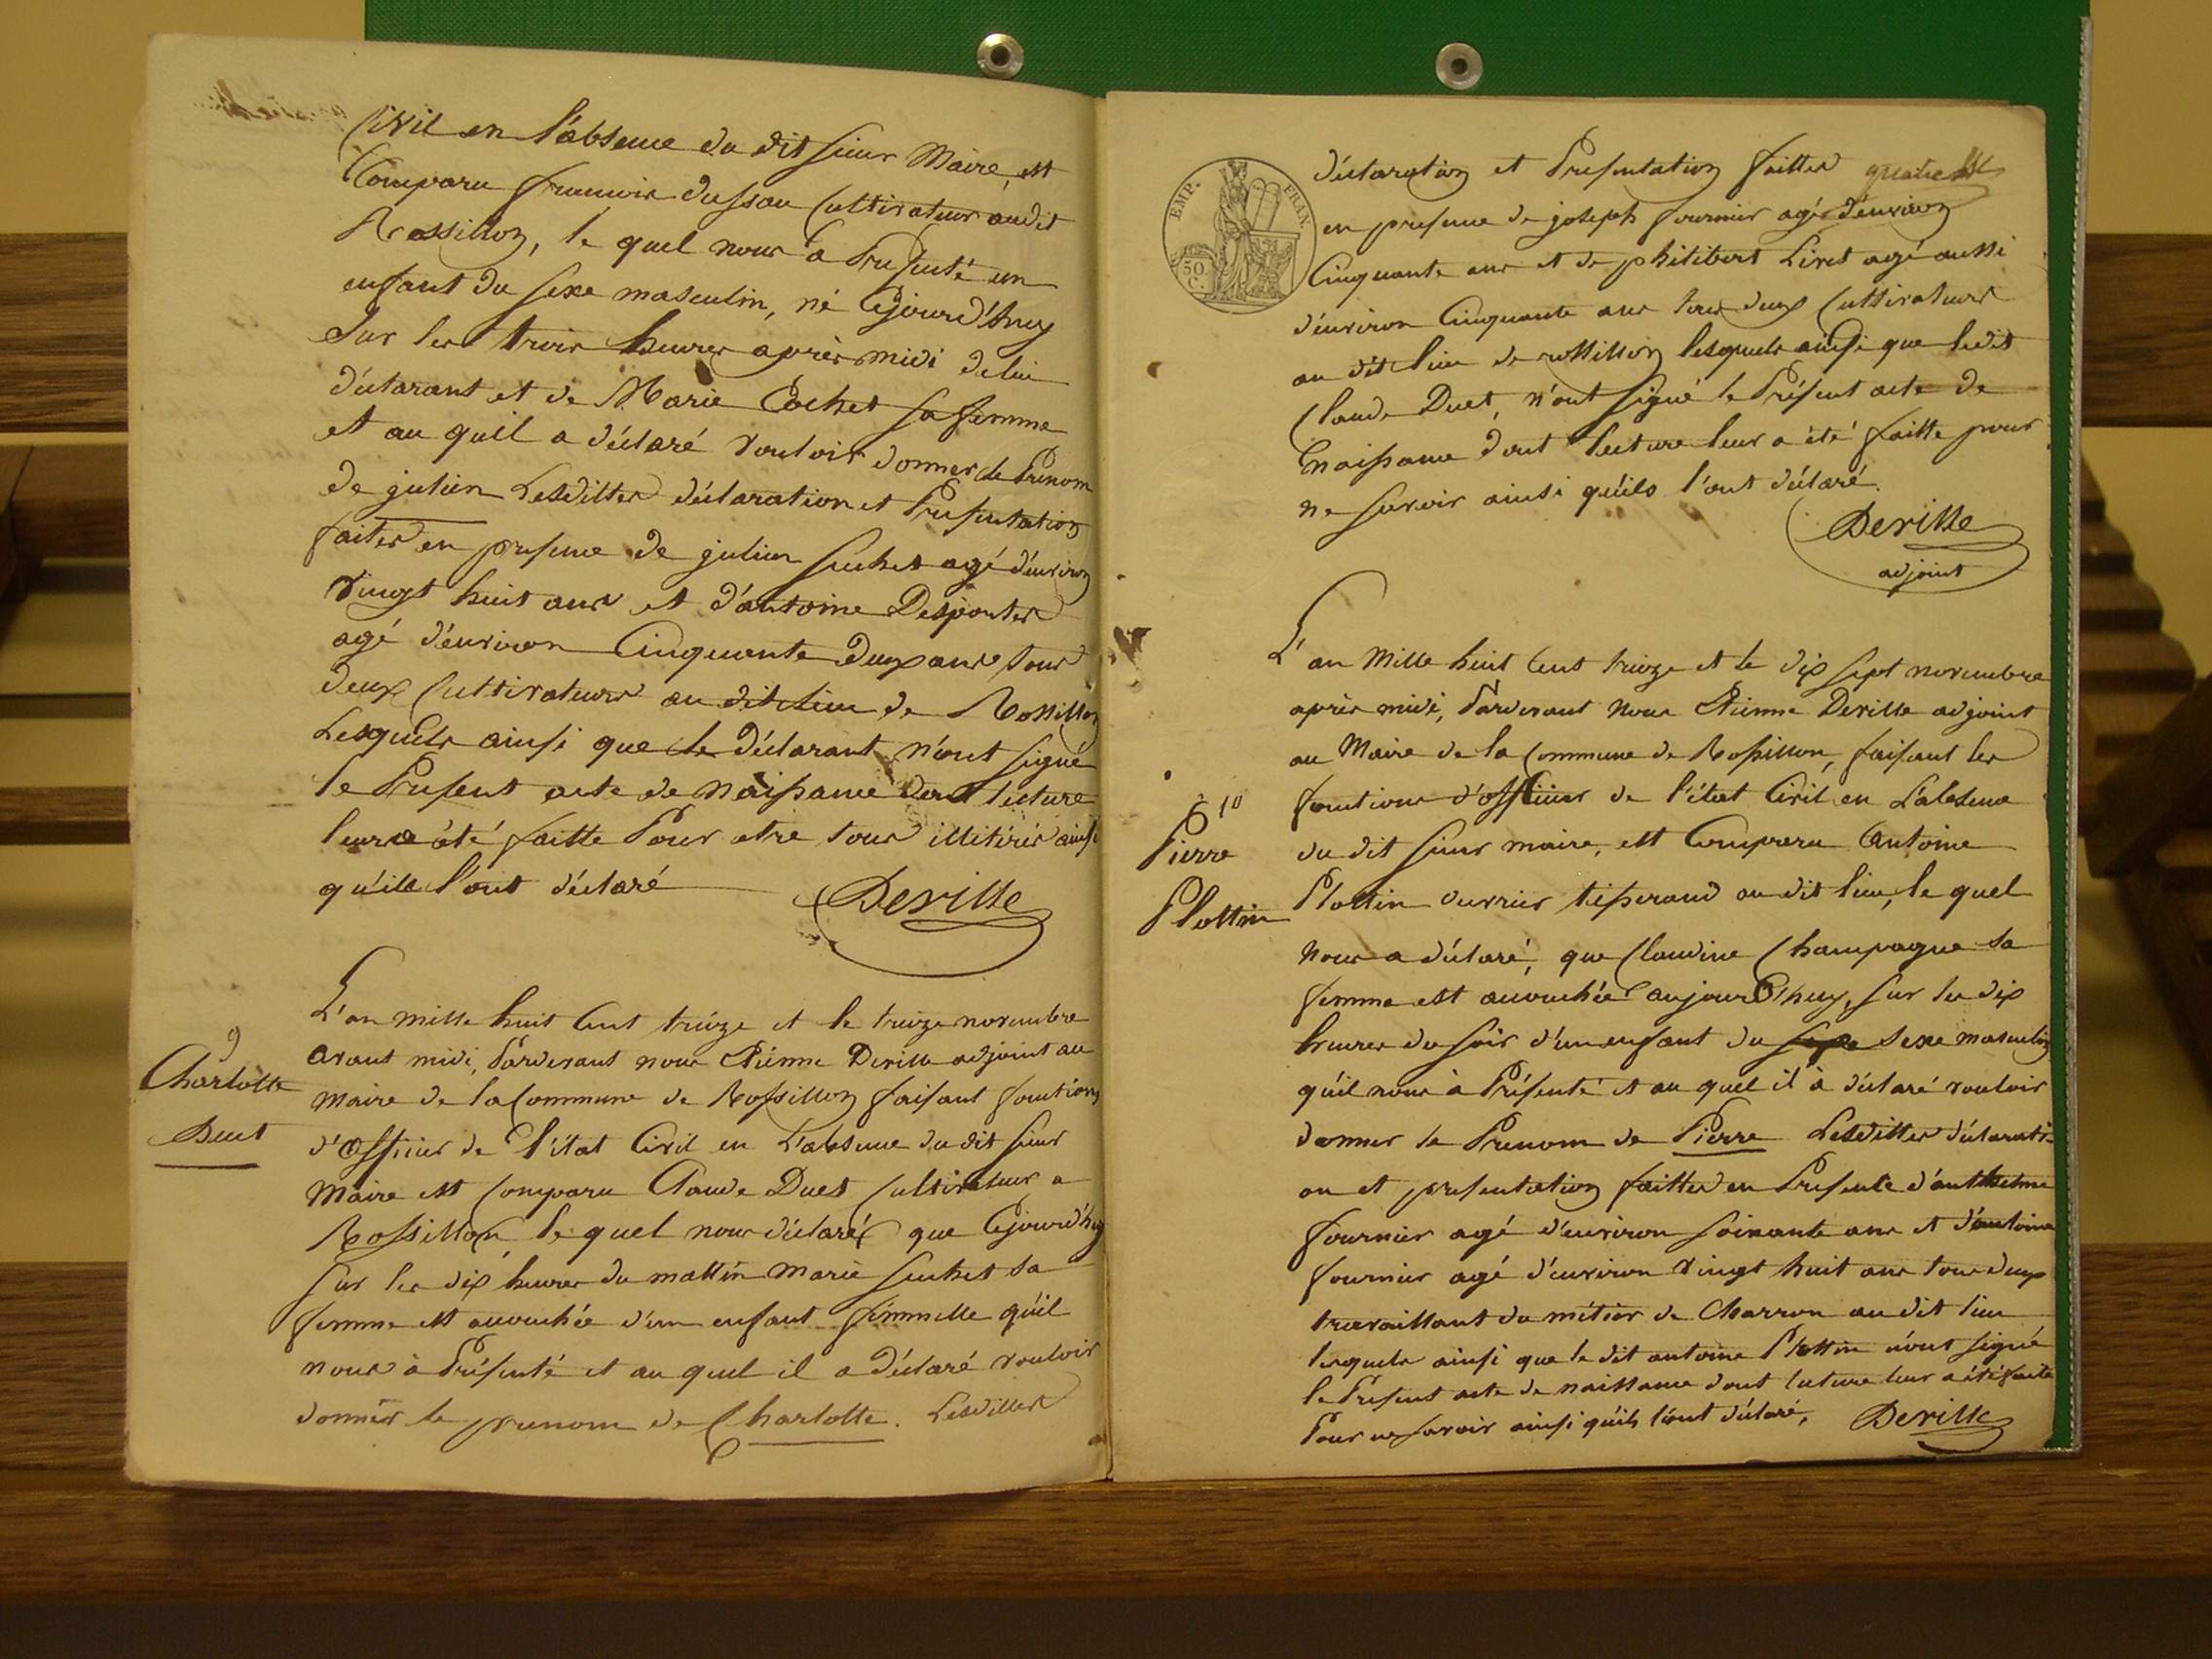 Civil en l'absence du dit sieur Maire, est
Comparu francois dussau Cultivateur audit
Rossillon, le quel nous a Presenté un
enfant du sexe masculin, né Cejourd'huy
Sur les trois heures après midi de lui
déclarant et de Marie Cochet sa femme
et au quel il a déclaré vouloir donner le Prénom
de julien Lesdittes déclaration et Presentation
faites en presence de julien suchet agé d'environ
vingt huit ans et d'antoine Desportes
agé d'environ Cinquante deux ans tous
deux Cultivateurs au dit lieu de Rossillon
Lesquels ainsi que le Déclarant n'ont signé
le Present acte de Naissance dont lecture
leur a été faitte Pour etre tous illitérés ainsi
qu'ils l'ont déclaré
Deville
9
Charlotte
Duet
L'an mille huit Cent treize et le treize novembre
avant midi, Pardevant nous Etienne Deville adjoint au
maire de la Commune de Rossillon faisant fonctions
d'officier de l'état Civil en L'absence du dit sieur
Maire est Comparu Claude Duet Cultivateur a
Rossillon, le quel nous déclaré que Cejourd'huy
sur les dix heures du mattin marie suchet sa
femme est accouchée d'un enfant fémmelle qu'il
nous à Présenté et au quel il a déclaré vouloir
donnér le prenom de Charlotte. Lesdittes
EMP. FRAN.
50 C.
déclaration et Presentation faittes
en presence de joseph fournier agé d'environ
Cinquante ans et de philibert Livet agé aussi
d'environ Cinquante ans tous deux Cultivateurs
au dit lieu de rossillon lesquels ainsi que ledit
Claude Duet, n'ont signé le Présent acte de
naissance dont lecture leur a été faitte pour
ne savoir ainsi qu'ils l'ont déclaré.
Deville
adjoint
10
Pierre
Plottin
L'an Mille huit Cent treize et le dix sept novembre
après midi, Pardevant Nous Etienne Deville adjoint
au Maire de la Commune de Rossillon, faisant les
fonctions d'officier de l'état Civil en L'absence
du dit sieur maire, est Comparu Antoine
Plottin ouvrier tisserand au dit lieu, le quel
Nous a déclaré, que Claudine Champagne sa
femme est accouchée aujourd'huy, sur les dix
heures du soir d'un enfant du sexe sexe masculin
qu'il nous à Présenté et au quel il à déclaré vouloir
donner le Prenom de Pierre Lesdittes déclarati-
on et presentation faittes en Presence d'anthelme
fournier agé d'environ soixante ans et d'antoine
fournier agé d'environ vingt huit ans tous deux
travaillant du métier de Charron au dit lieu
lesquels ainsi que le dit antoine Plottin n'ont signé
le Present acte de naissance dont lecture leur a été faite
Pour ne savoir ainsi qu'ils l'ont déclaré, Deville